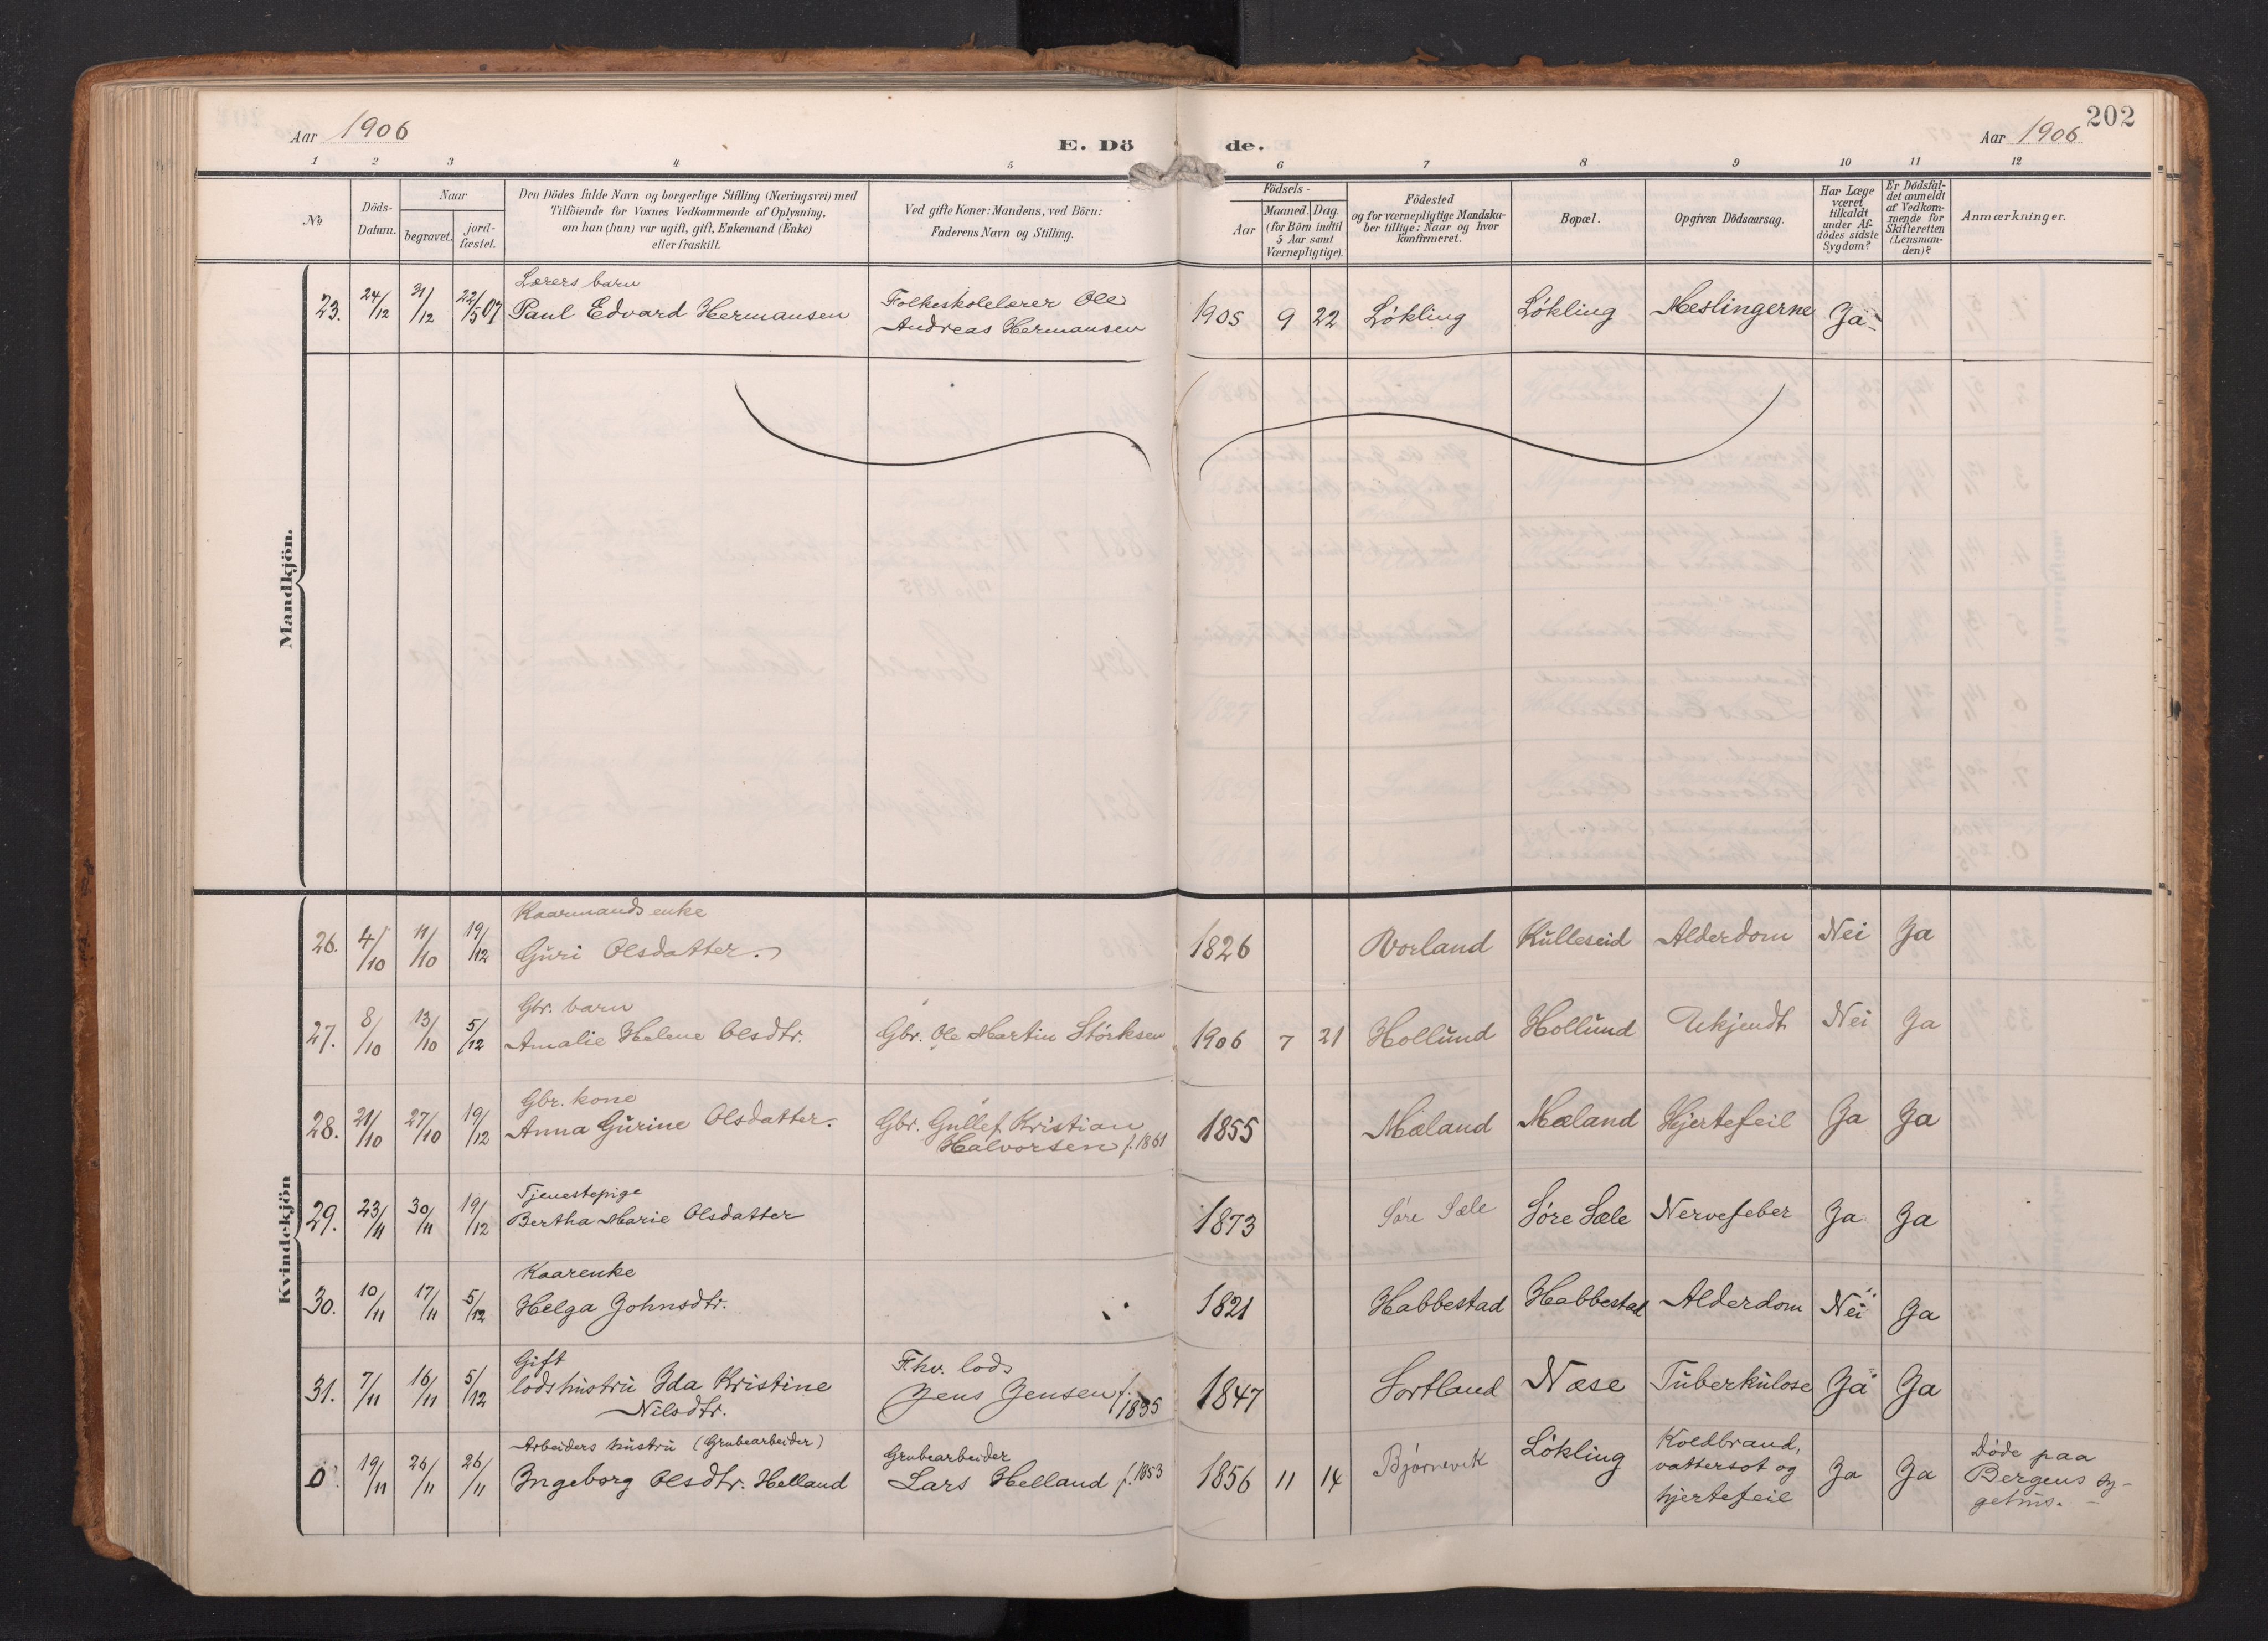 202
Aar 1906
E. Dö de.
Aar 1906
1 2 3 4 5 6 7 8 9 10 11 12
No
Döds-
Datum.
Naar
begravet.
jord-
fæstet.
Den Dödes fulde Navn og borgerlige Stilling (Næringsvei) med
Tilföiende for Voxnes Vedkommende af Oplysning,
om han (hun) var ugift, gift, Enkemand (Enke)
eller fraskilt.
Ved gifte Koner: Mandens, ved Börn:
Faderens Navn og Stilling.
Födsels-
Aar
Maaned. Dag.
(for Börn indtil
5 Aar samt
Værnepligtige).
Födested
og for værnepligtige Mandska-
ber tillige: Naar og hvor
konfirmeret.
Bopæl.
Opgiven Dödsaarsag.
Har Læge
været
tilkaldt
under Af-
dödes sidste
Sygdom?
Er Dödsfal-
det anmeldt
af Vedkom-
mende for
Skifteretten
(Lensman-
den)?
Anmærkninger.
Mandkjön.
Lærers barn
23. 24/12 31/12 22/5 07 Paul Edvard Hermansen
Folkeskolelærer Ole
Andreas Hermansen
1905 9 22 Løkling Løkling Meslingerne Ja
Kvindekjön
Kaarmands enke
26. 4/10 11/10 19/12 Guri Olsdatter. 1826 Vorland Kulleseid Alderdom Nei Ja
Gbr. barn
27. 8/10 13/10 5/12 Amalie Helene Olsdtr. Gbr. Ole Martin Størksen 1906 7 21 Hollund Hollund Ukjendt Nei Ja
Gbr. kone
28. 21/10 27/10 19/12 Anna Gurine Olsdatter. Gbr. Gullef Kristian
Halvorsen f. 1861
1855 Mæland Mæland Hjertefeil Ja Ja
Tjenestepige
29. 23/11 30/11 19/12 Bertha Marie Olsdatter 1873 Søre Sæle Søre Sæle Nervefeber Ja Ja
Kaarenke
30. 10/11 17/11 5/12 Helga Johnsdtr. 1821 Habbestad Habbestad Alderdom Nei Ja
Gift
31. 7/11 16/11 5/12 lodshustru Ida Kristine
Nilsdtr.
F.hv. lods
Jens Jensen f. 1835
1847 Sortland Næse Tuberkulose Ja Ja
Arbeiders hustru (Grubearbeider)
0. 19/11 26/11 26/11 Ingeborg Olsdtr. Helland
Grubearbeider
Lars Helland f. 1853
1856 11 14 Bjørnevik Løkling
Koldbrand,
vattersot og
hjertefeil
Ja Ja
Døde paa
Bergens sy-
gehus.